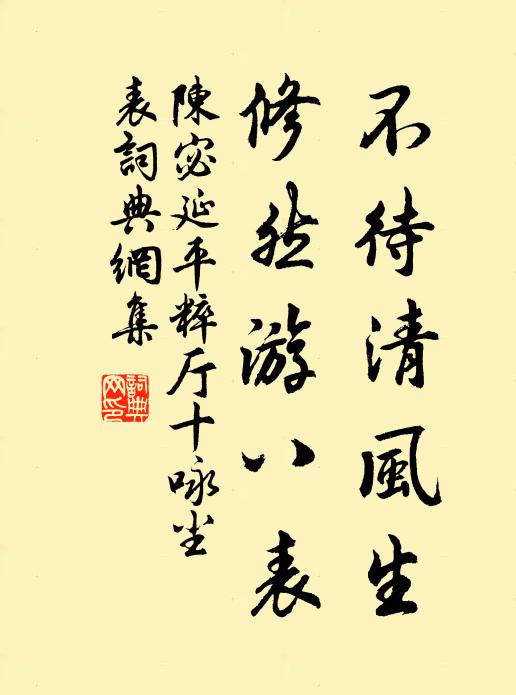 不待清風生
修然游八表
陳宓延平粹厅十咏尘
表詞典網集
詞典
网印